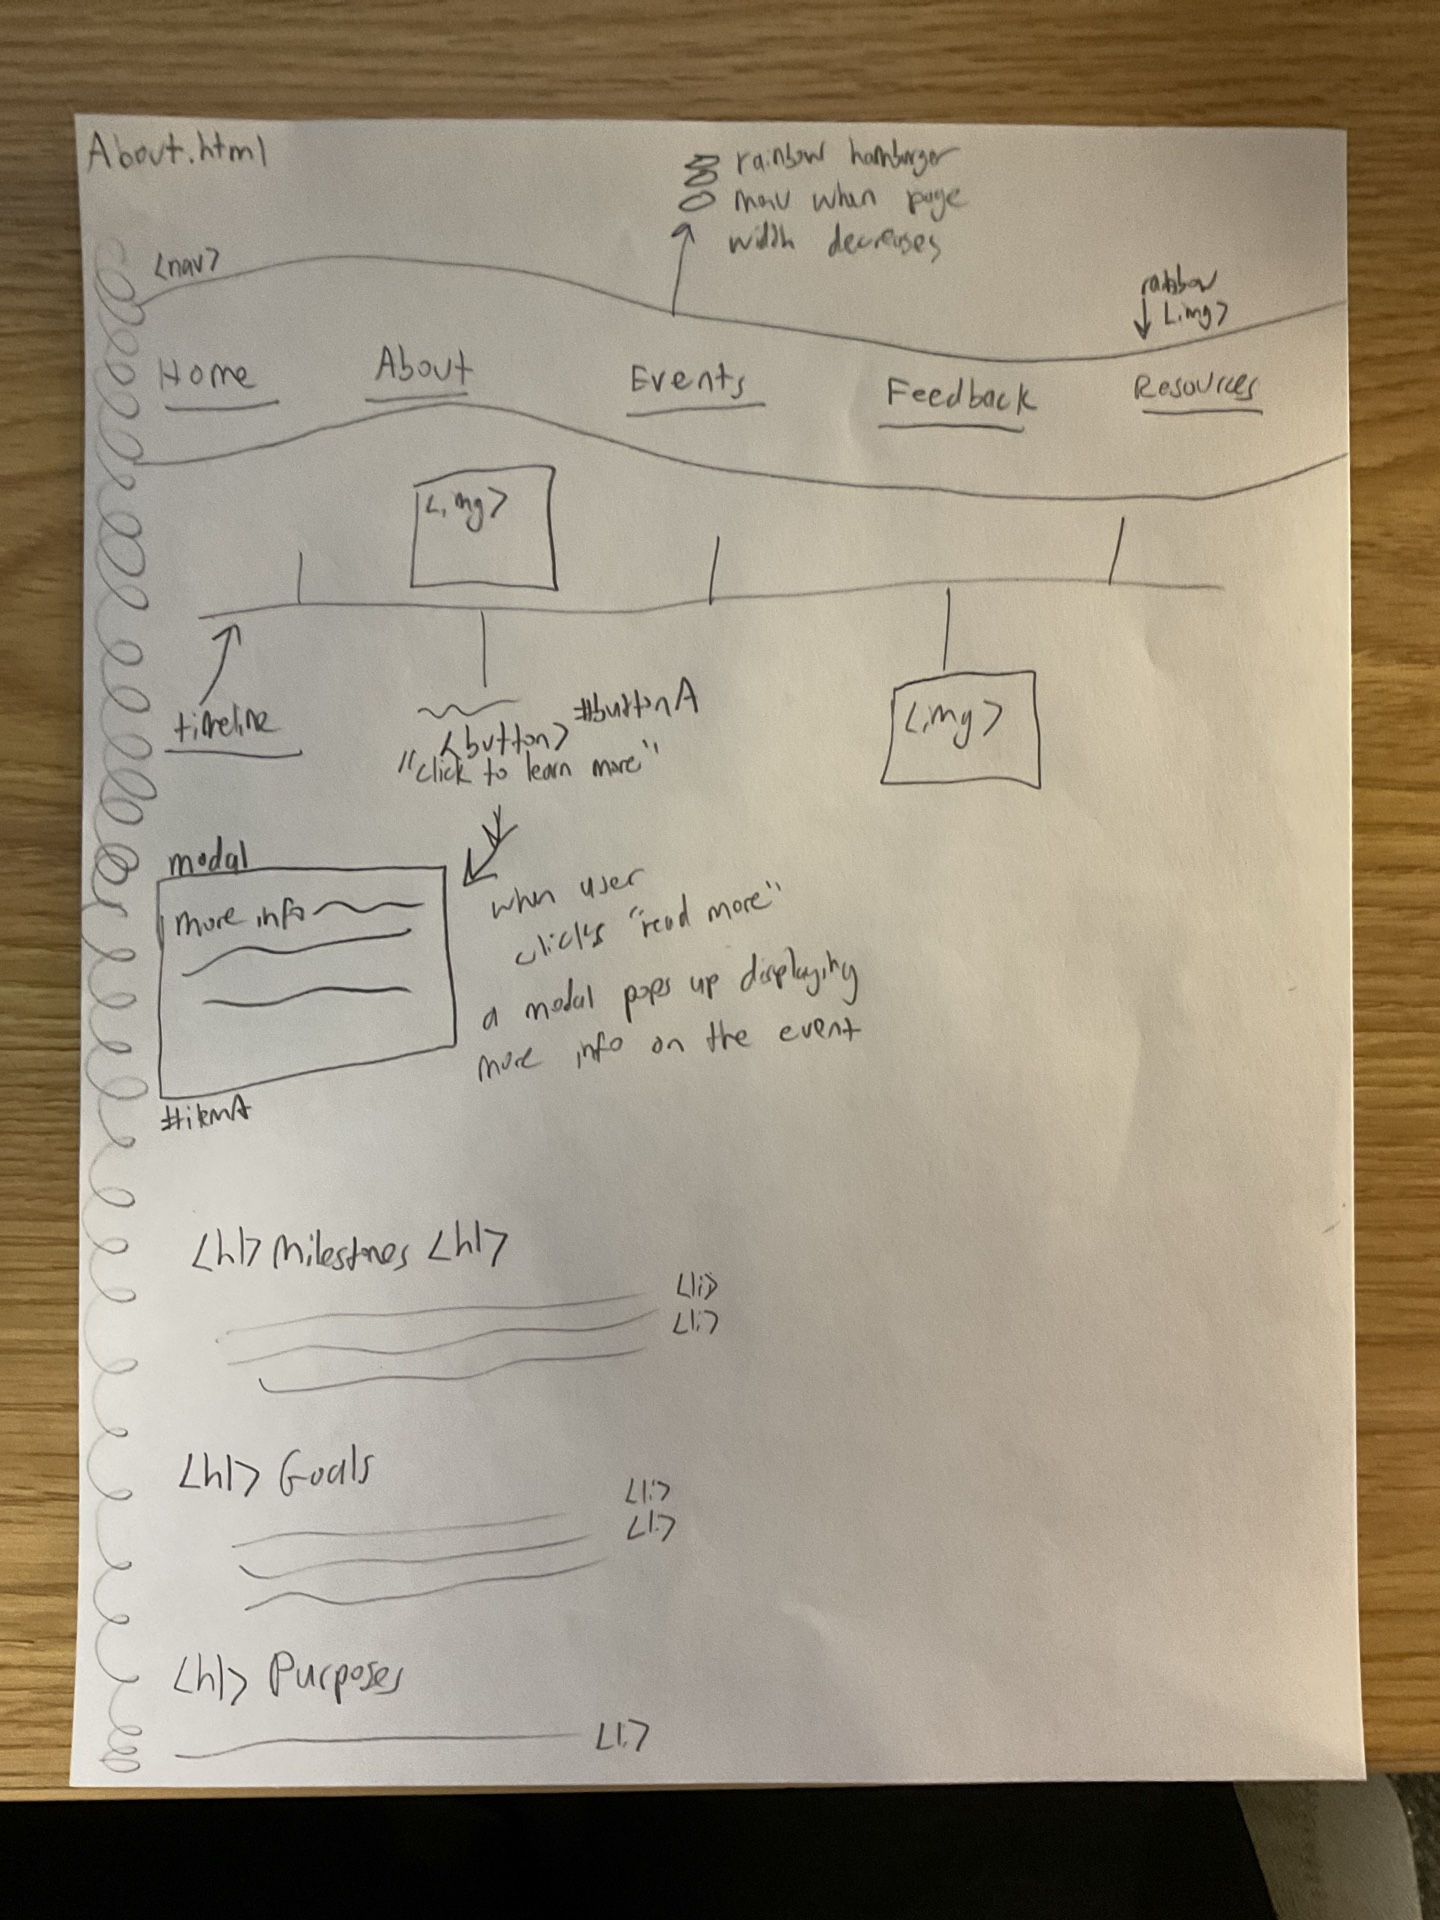 About.html
rainbow hamburger
menu when page
width decreases
<nav>
rainbow
<img>
Home
About
Events
Feedback
Resources
<img>
timeline
<button> #buttonA
"click to learn more"
<img>
modal
more info
when user
clicks "read more"
a modal pops up displaying
more info on the event
#itemA
<h1> Milestones <h1>
<li>
<li>
<h1> Goals
<li>
<li>
<h1> Purposes
<li>